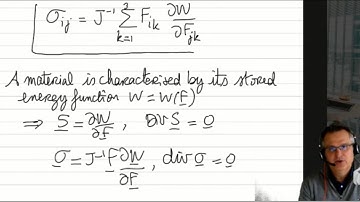 σij = J⁻¹ ∑ Fik ∂W/∂Fjk
k=1 3
A material is characterised by its stored
energy function W = W(F)
⇒ S = ∂W/∂F , Div S = 0
σ = J⁻¹F ∂W/∂F , div σ = 0